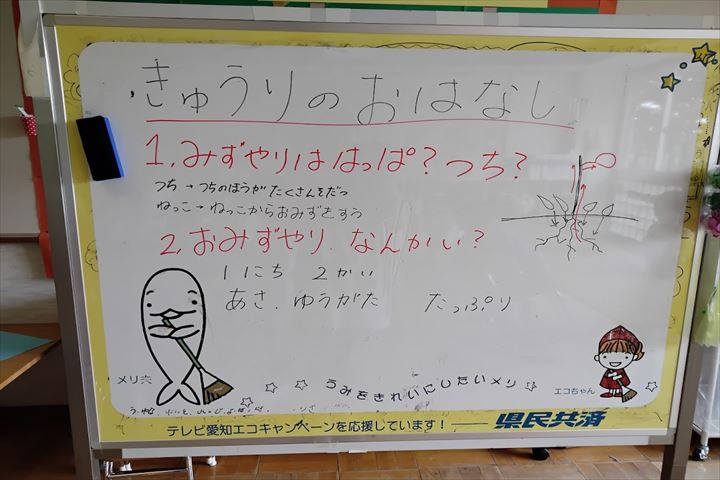 きゅうりのおはなし
1.みずやりははっぱ?つち?
つち→つちのほうがたくさんそだつ
ねっこ→ねっこからおみずをすう
2.おみずやり、なんかい?
1にち 2かい
あさ、ゆうがた たっぷり
メリ六
うみをきれいにしたいメリ
エコちゃん
テレビ愛知エコキャンペーンを応援しています!
県民共済